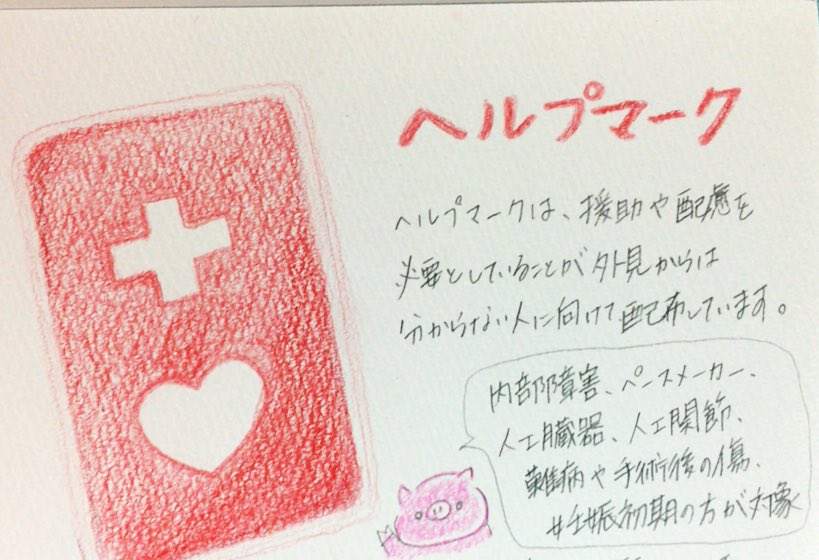 ヘルプマーク
ヘルプマークは、援助や配慮を
必要としていることが外見からは
分からない人に向けて配布しています。
内部障害、ペースメーカー、
人工臓器、人工関節、
難病や手術後の傷、
妊娠初期の方が対象